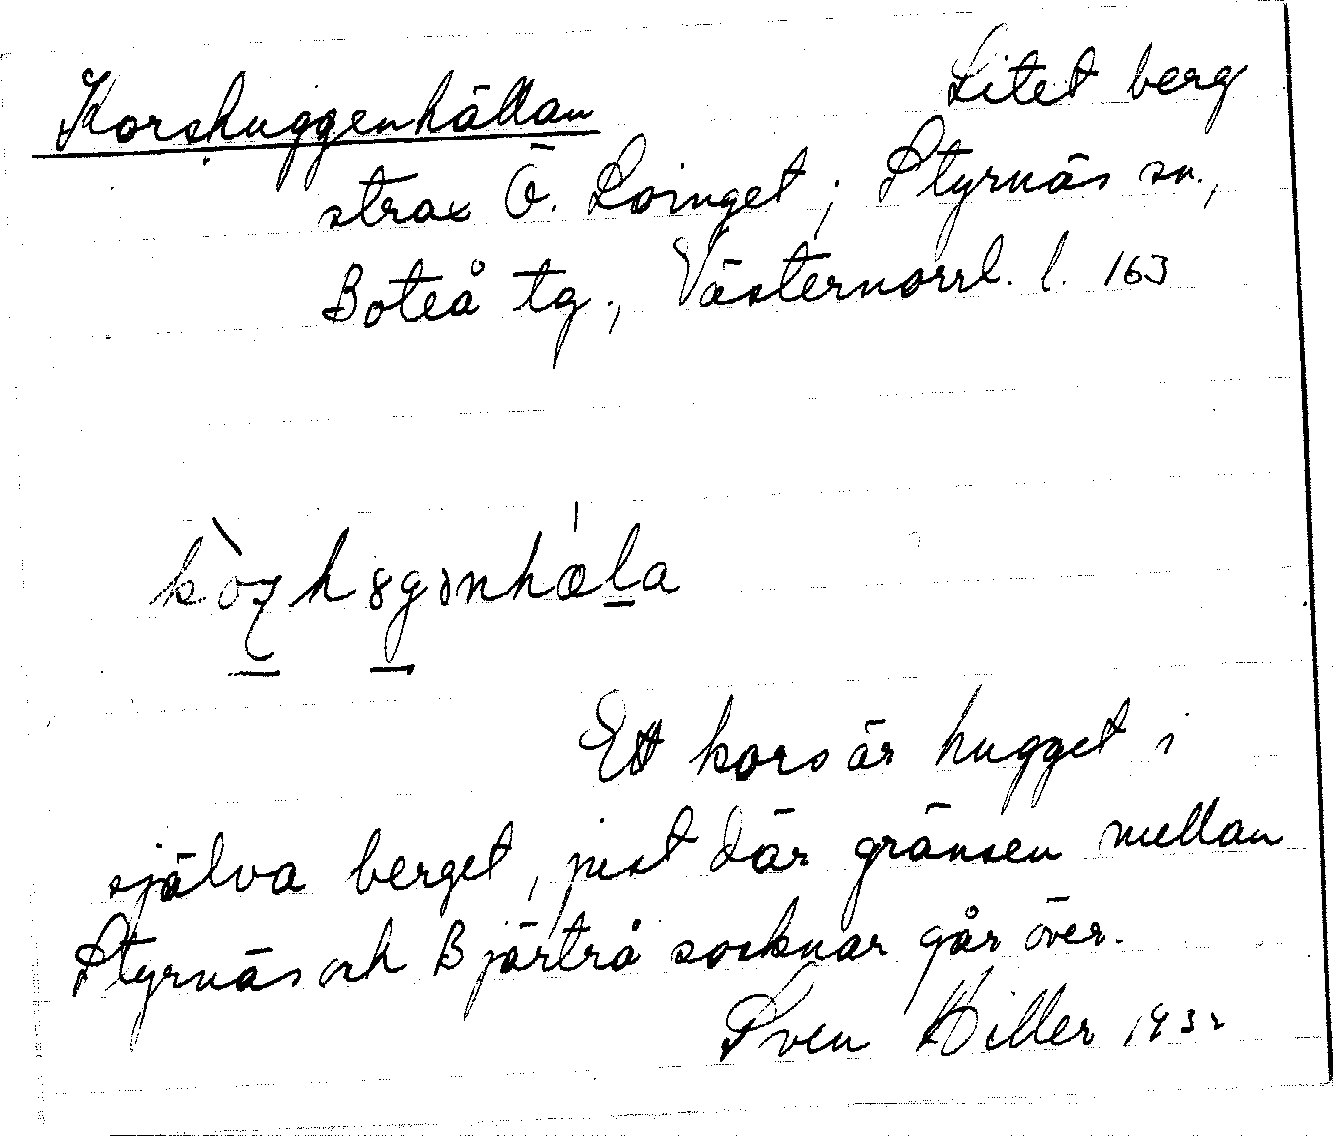 Korshuggenhällan Litet berg
strax Ö. Loinget; Styrnäs sn.,
Boteå tg., Västernorrl. l. 163
Ett kors är hugget i
själva berget, just där gränsen mellan
Styrnäs och Bjärtrå socknar går över.
Sven Hiller 1932